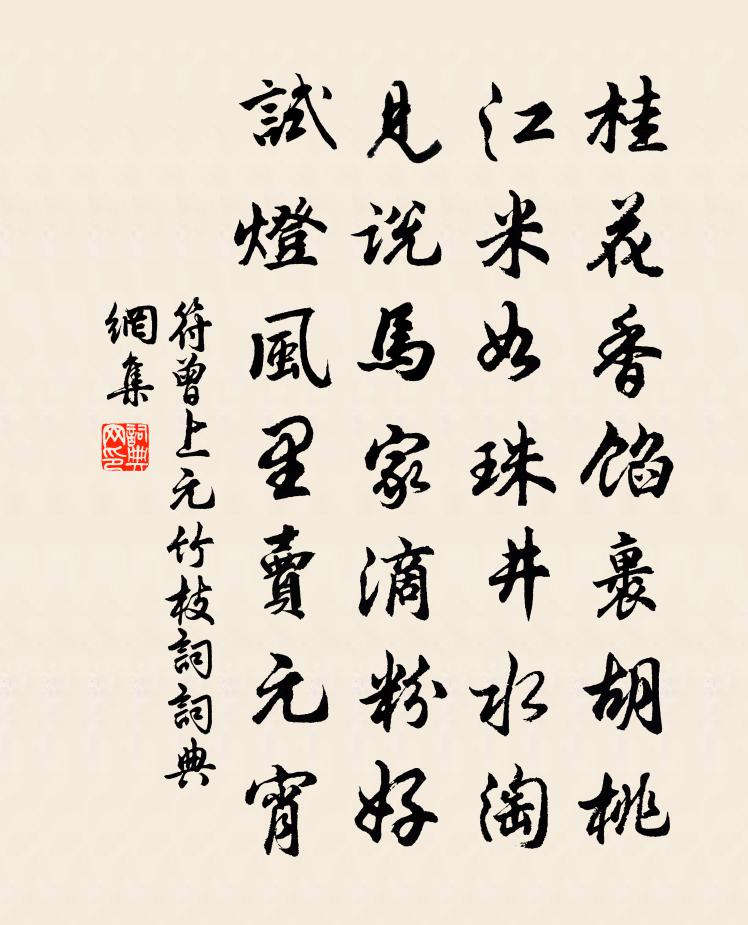 桂花香馅裹胡桃
江米如珠井水淘
見说馬家滴粉好
試燈風里賣元宵
符曾上元竹枝詞詞典
網集
詞典
网印